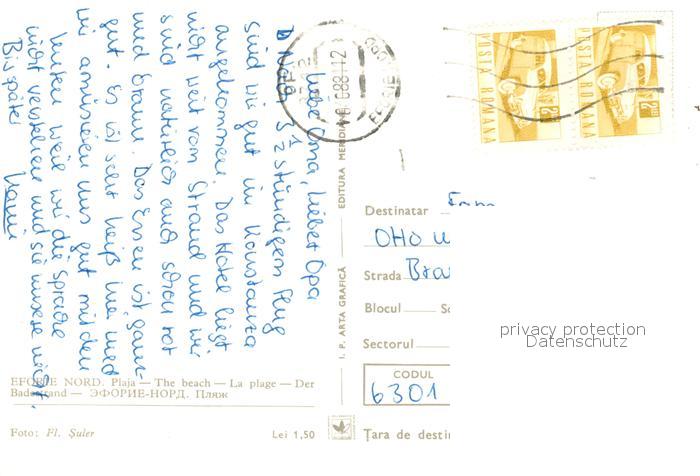 Liebe Oma, lieber Opa
Nach 3 1/2 stündigem Flug
sind wir gut in Konstanza
angekommen. Das Hotel liegt
nicht weit vom Strand und wir
sind natürlich auch schon rot
und braun. Das Essen ist ganz
gut. Es ist sehr heiß hier und
wir amüsieren uns gut mit den
Leuten weil wir die Sprache
nicht verstehen und sie unsere nicht.
Bis später
EFORIE NORD. Plaja — The beach — La plage — Der
Badestrand — ЭФОРИЕ-НОРД. Пляж
Foto: Fl. Șuler
Lei 1,50
I. P. ARTA GRAFICĂ
EDITURA MERIDIANE
EFORIE
POSTA ROMANA
POSTA ROMANA
Destinatar
Otto u
Strada Bra
Blocul
Sectorul
CODUL
6301
Țara de desti
privacy protection
Datenschutz